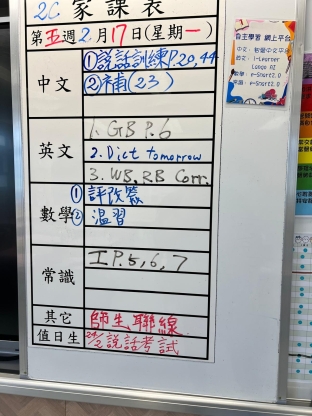 2C 家課表
第五週2月17日(星期一)
中文
①説話訓練P.20,44
②補(23)
英文
1. GB P.6
2. Dict tomorrow
3. WB, RB Corr.
數學
①評改簽
②溫習
常識
I P.5,6,7
其它
師生聯線
值日生
24/2說話考試
自主學習 網上平台
中文:
英文: i-Learner
Longo AI
數學: e-Smart2.0
常識: e-Smart2.0